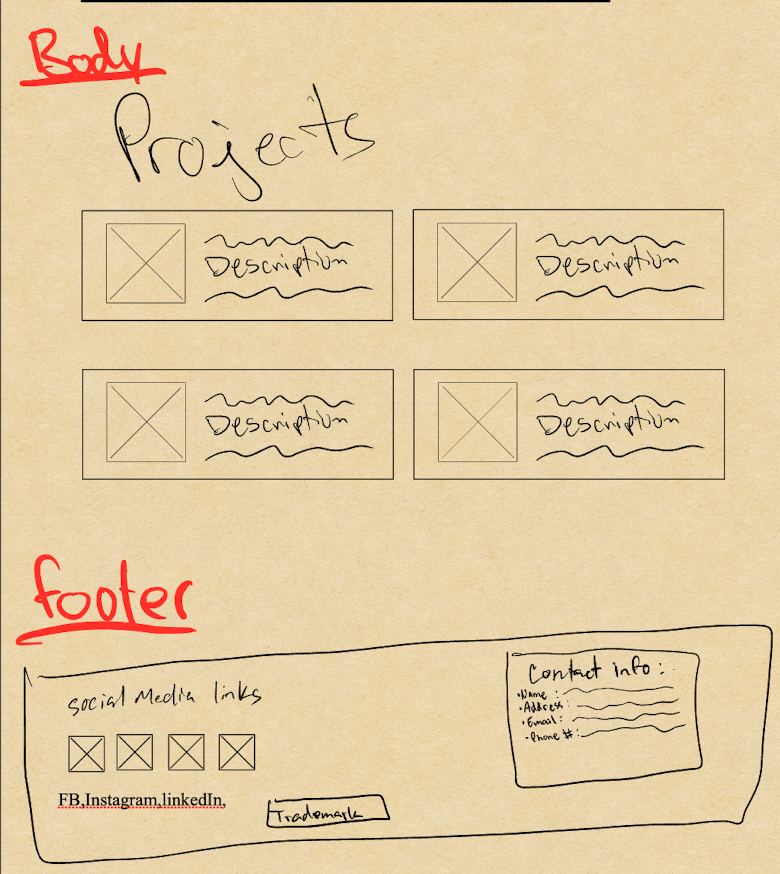 Body
Projects
Description
Description
Description
Description
footer
social Media links
FB,Instagram,linkedIn,
Trademark
Contact info:
•Name:
•Address:
•Email:
•Phone #: